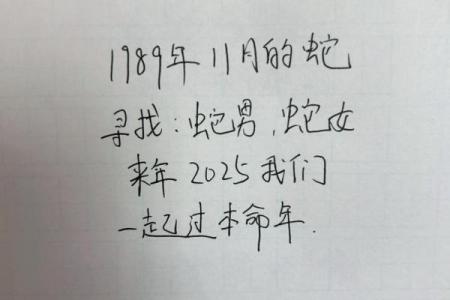 1989年11月的蛇
寻找:蛇男,蛇女
来年2025我们
一起过本命年.